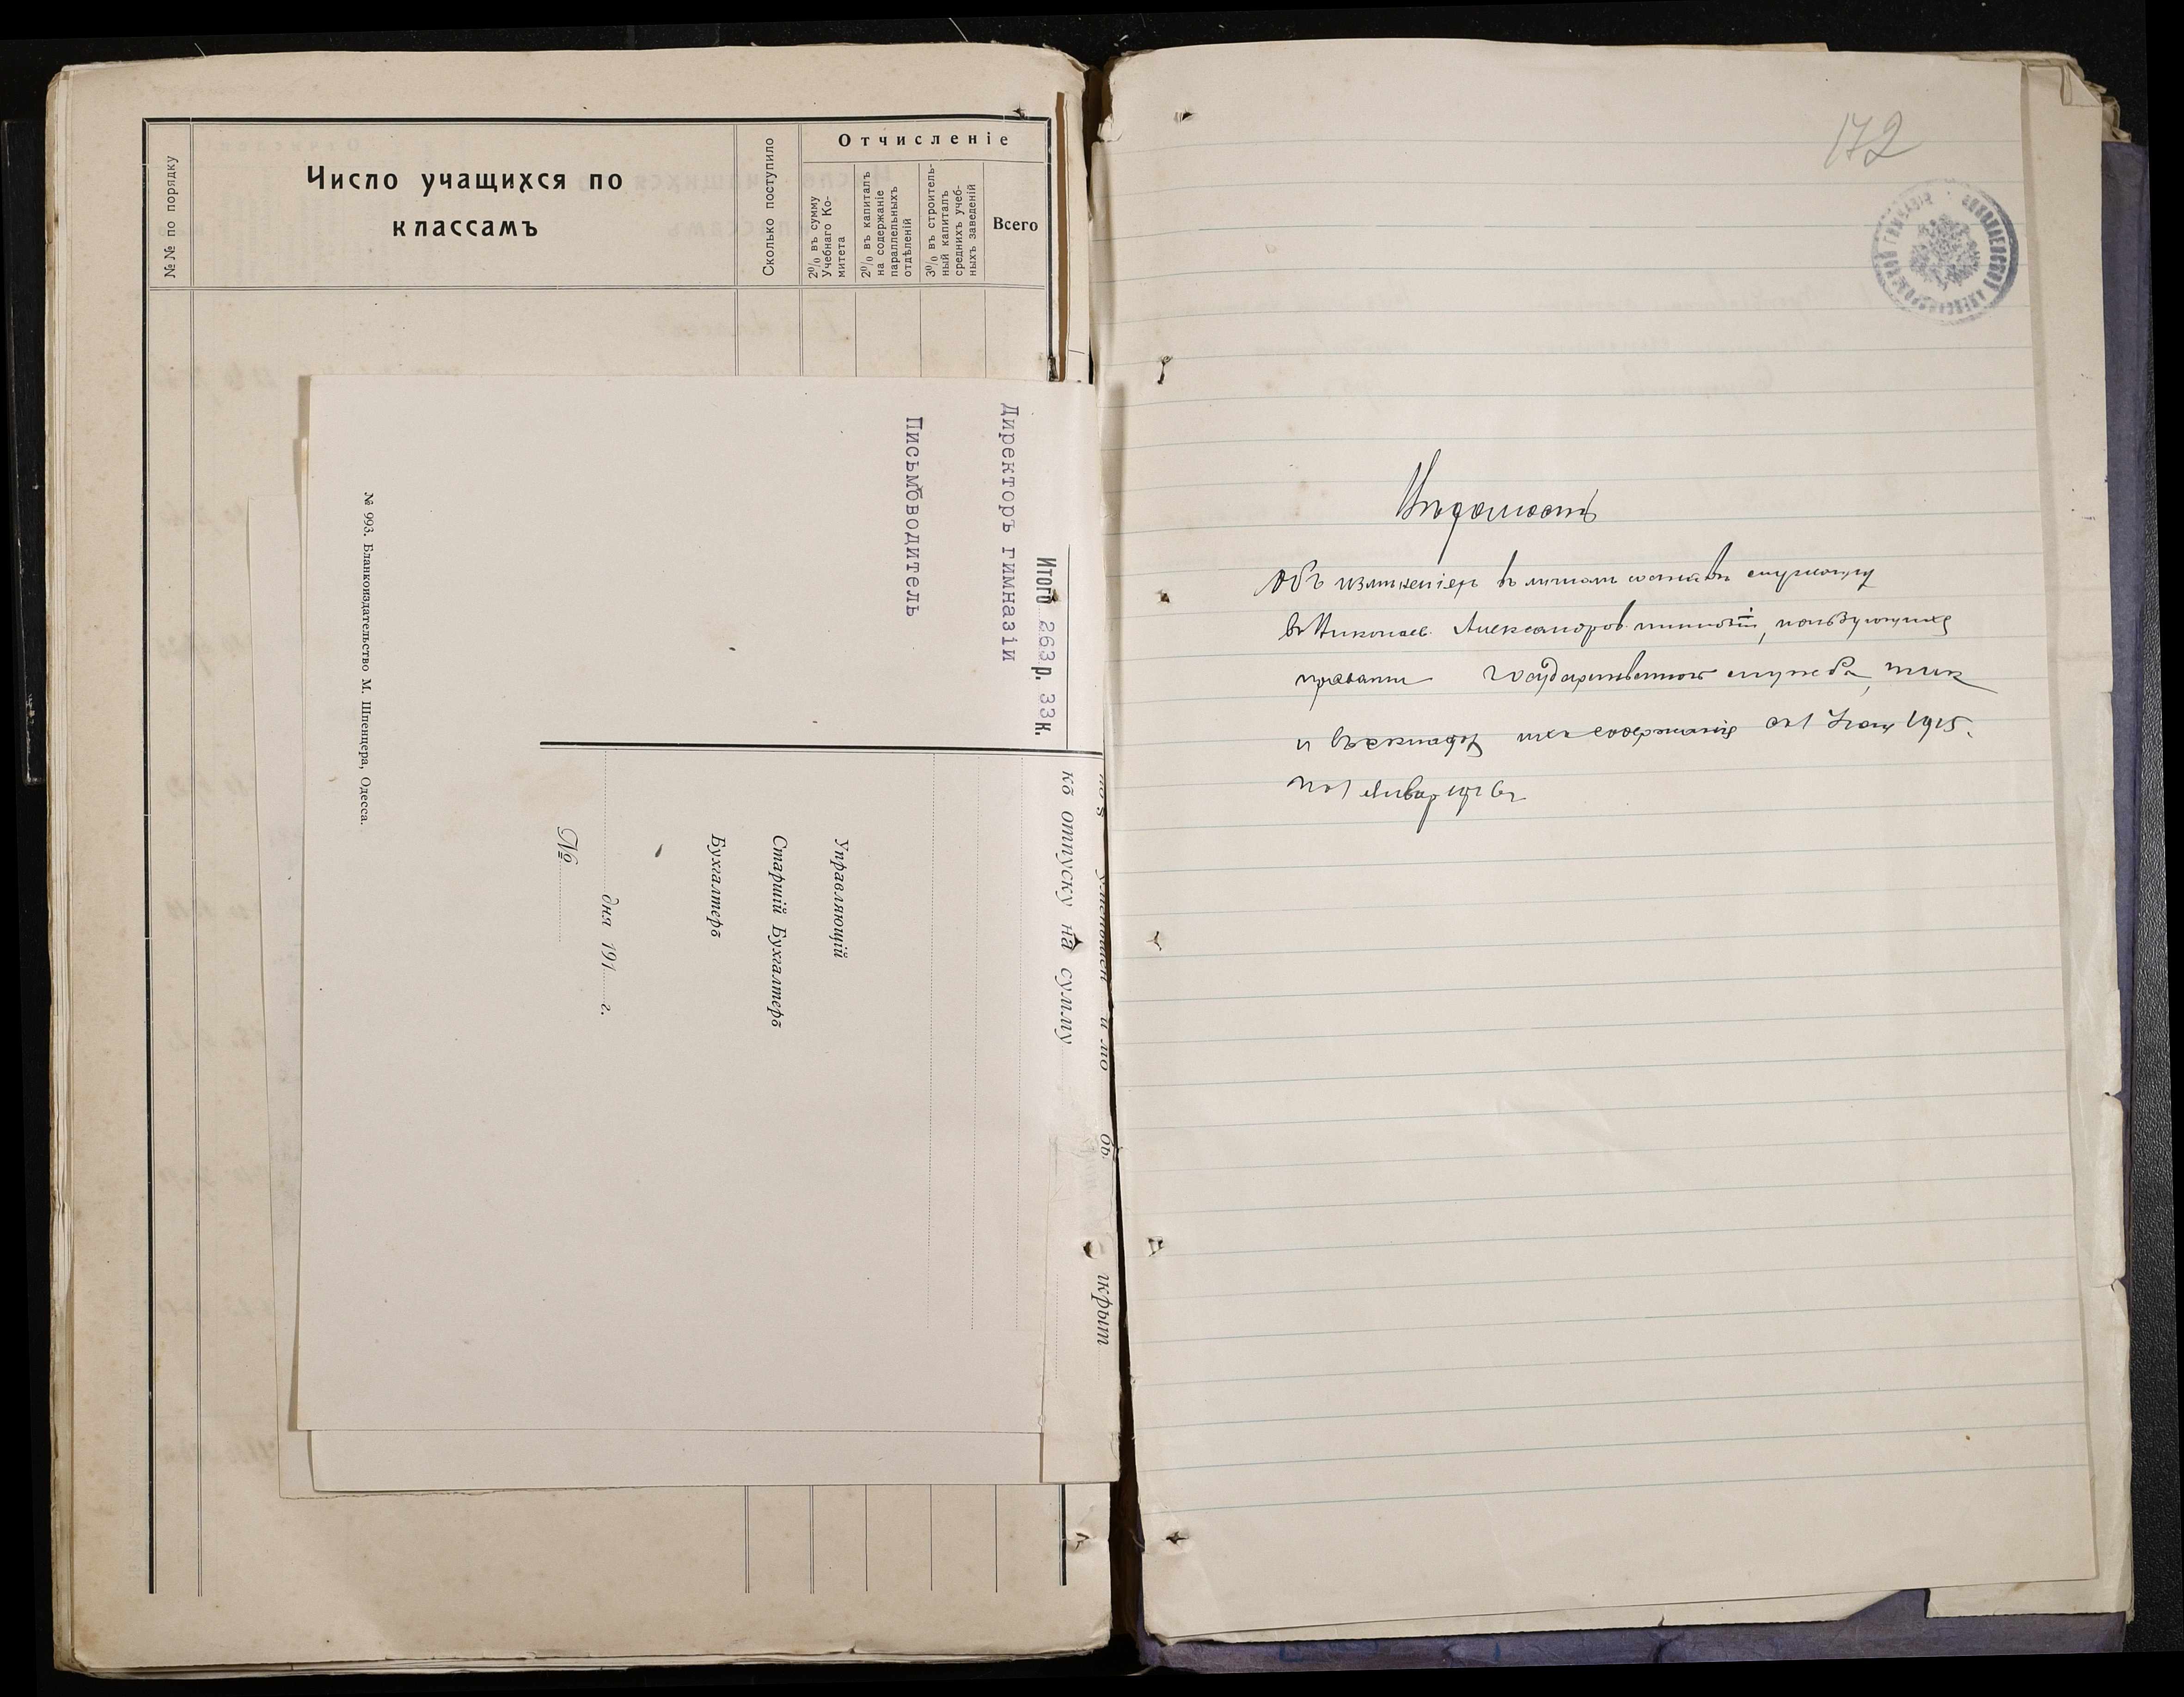 №№ по порядку
Число учащихся по
классамъ
Сколько поступило
Отчисленіе
2% въ сумму
Учебнаго Ко-
митета
2% въ капиталъ
на содержаніе
параллельныхъ
отдѣленій
3% въ строитель-
ный капиталъ
среднихъ учеб-
ныхъ заведеній
Всего
къ отпуску на сумму
Итого 263 р. 33 к.
Директоръ гимназіи
Письмоводитель
Управляющій
Старшій Бухгалтеръ
Бухгалтеръ
дня 191 г.
№
№ 993. Бланкоиздательство М. Шпенцера, Одесса.
172
НИКОЛАЕВСКОЙ АЛЕКСАНДРОВСКОЙ ГИМНАЗІИ
Вѣдомость
Объ измѣненіях въ личномъ составѣ служащих
въ Николаев. Александров. гимназіи, пользующихся
правами Государственной службы, так
и въ окладах ихъ содержанія съ 1 1915
по 1 Январ 1916 г